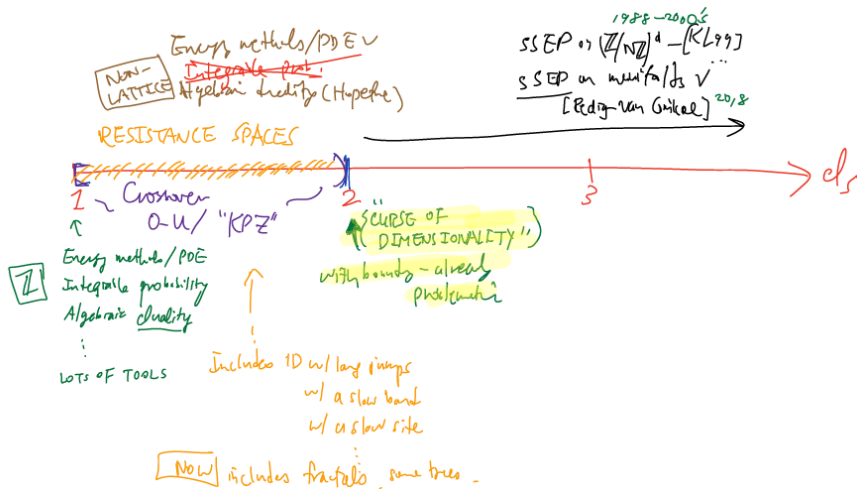 Energy methods/PDE ✓
Integrable prob.
Algebraic duality (Hopefully)
NON-LATTICE
1988-2000's
SSEP on (ℤ/Nℤ)^d - [KL99]
...
SSEP on manifolds ✓
[van Ginkel] 2018
RESISTANCE SPACES
1
2
3
d_s
Crossover
O-U / "KPZ"
("CURSE OF
DIMENSIONALITY")
with boundary - already
problematic
ℤ
Energy methods/PDE
Integrable probability
Algebraic duality
LOTS OF TOOLS
Includes 1D w/ long jumps
w/ a slow bond
w/ a slow site
NOW includes fractals, some trees